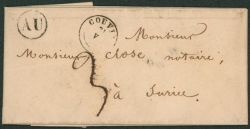 AU
COUVI
Monsieur
Monsieur Close notaire,
3
à Surice.